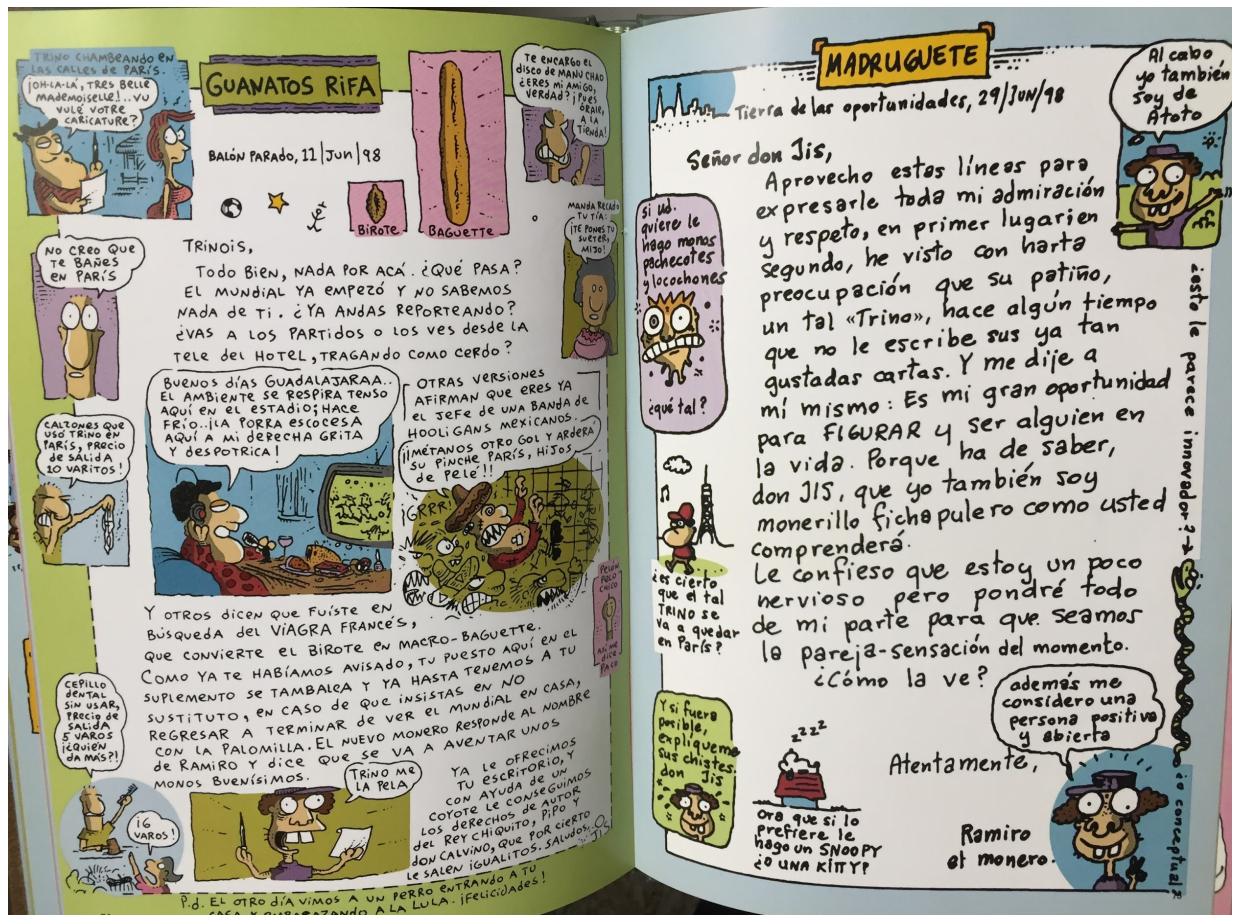 TRINO CHAMBEANDO EN
LAS CALLES DE PARÍS.
¡OH-LA-LÁ, TRES BELLE
MADEMOISELLE!..VU
VULÉ VOTRE
CARICATURE?
GUANATOS RIFA
BALÓN PARADO, 11/JUN/98
BIROTE
BAGUETTE
TE ENCARGO EL
DISCO DE MANU CHAO
¿ERES MI AMIGO,
VERDAD? ¡PUES
ÓRALE,
A LA
TIENDA!
MANDA RECADO
TU TÍA:
¡TE PONES TU
SUÉTER,
MIJO!
NO CREO QUE
TE BAÑES
EN PARÍS
TRINOIS,
TODO BIEN, NADA POR ACÁ. ¿QUÉ PASA?
EL MUNDIAL YA EMPEZÓ Y NO SABEMOS
NADA DE TI. ¿YA ANDAS REPORTEANDO?
¿VAS A LOS PARTIDOS O LOS VES DESDE LA
TELE DEL HOTEL, TRAGANDO COMO CERDO?
CALZONES QUE
USÓ TRINO EN
PARÍS, PRECIO
DE SALIDA
20 VARITOS!
BUENOS DÍAS GUADALAJARAA..
EL AMBIENTE SE RESPIRA TENSO
AQUÍ EN EL ESTADIO; HACE
FRÍO..¡LA PORRA ESCOCESA
AQUÍ A MI DERECHA GRITA
Y DESPOTRICA!
OTRAS VERSIONES
AFIRMAN QUE ERES YA
EL JEFE DE UNA BANDA DE
HOOLIGANS MEXICANOS.
¡¡MÉTANOS OTRO GOL Y ARDERÁ
SU PINCHE PARÍS, HIJOS
DE PELÉ!!
¡GRRR!
PELÓN
POLO
CHICO
ASÍ ME
DICE
PACO
Y OTROS DICEN QUE FUISTE EN
BÚSQUEDA DEL VIAGRA FRANCÉS,
QUE CONVIERTE EL BIROTE EN MACRO-BAGUETTE.
COMO YA TE HABÍAMOS AVISADO, TU PUESTO AQUÍ EN EL
SUPLEMENTO SE TAMBALEA Y YA HASTA TENEMOS A TU
SUSTITUTO, EN CASO DE QUE INSISTAS EN NO
REGRESAR A TERMINAR DE VER EL MUNDIAL EN CASA,
CON LA PALOMILLA. EL NUEVO MONERO RESPONDE AL NOMBRE
DE RAMIRO Y DICE QUE SE VA A AVENTAR UNOS
MONOS BUENÍSIMOS.
CEPILLO
DENTAL
SIN USAR,
PRECIO DE
SALIDA
5 VAROS
¡¿QUIÉN
DA MÁS?!
¡6
VAROS!
TRINO ME
LA PELA
YA LE OFRECIMOS
TU ESCRITORIO, Y
CON AYUDA DE UN
COYOTE LE CONSEGUIMOS
LOS DERECHOS DE AUTOR
DEL REY CHIQUITO, PIPO Y
DON CALVINO, QUE POR CIERTO
LE SALEN IGUALITOS. SALUDOS,
JIS
P.d. EL OTRO DÍA VIMOS A UN PERRO ENTRANDO A TU
CASA Y EMBARAZANDO A LA LULA. ¡FELICIDADES!
MADRUGUETE
Tierra de las oportunidades, 29/JUN/98
Al cabo
yo también
soy de
Atoto
Señor don Jis,
Aprovecho estas líneas para
expresarle toda mi admiración
y respeto, en primer lugar; en
segundo, he visto con harta
preocupación que su patiño,
un tal «Trino», hace algún tiempo
que no le escribe sus ya tan
gustadas cartas. Y me dije a
mí mismo: Es mi gran oportunidad
para FIGURAR y ser alguien en
la vida. Porque ha de saber,
don JIS, que yo también soy
monerillo fichapulero como usted
comprenderá.
Le confieso que estoy un poco
nervioso pero pondré todo
de mi parte para que seamos
la pareja-sensación del momento.
¿Cómo la ve?
Si ud.
quiere le
hago monos
pachecotes
y locochones
¿qué tal?
¿es cierto
que el tal
TRINO se
va a quedar
en París?
Y si fuera
posible,
explíqueme
sus chistes,
don Jis
zzzz
Ora que si lo
prefiere le
hago un SNOOPY
¿O UNA KITTY?
¿esto le parece innovador?→
¿o conceptual?
además me
considero una
persona positiva
y abierta
Atentamente,
Ramiro
et monero.